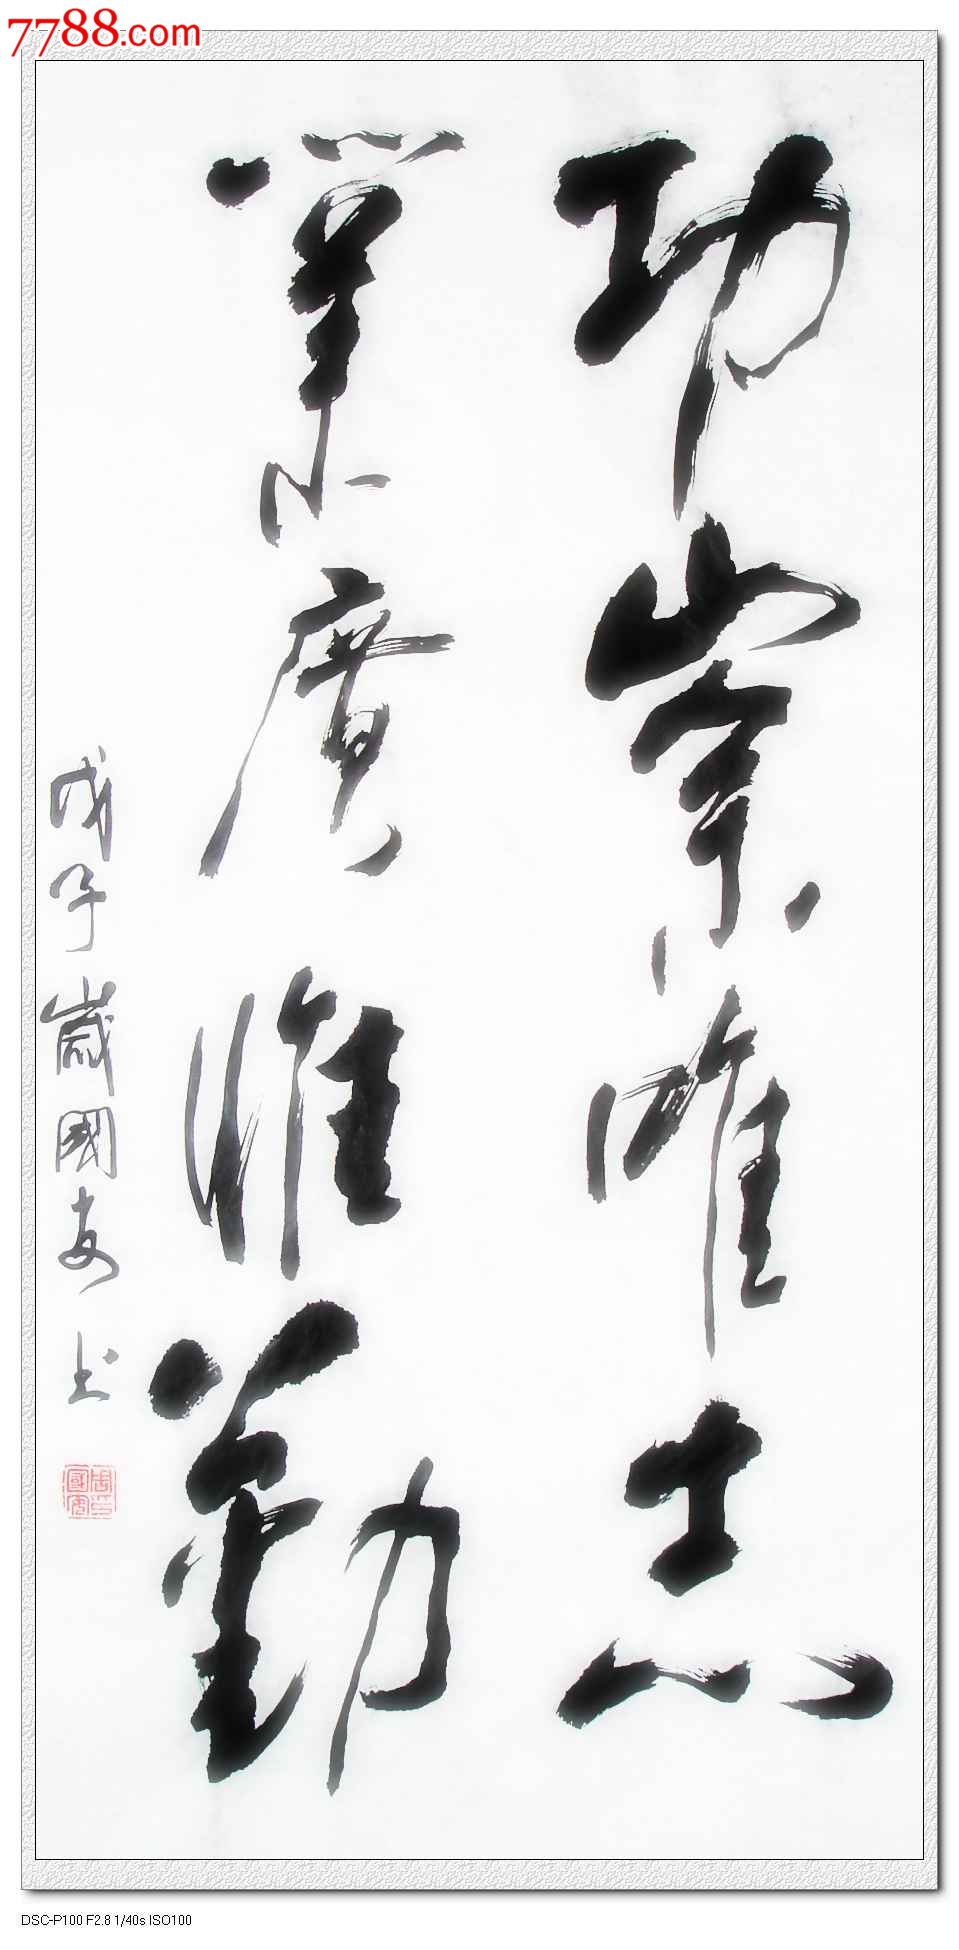 7788.com
功崇唯志
業廣惟勤
戊子歲國安书
DSC-P100 F2.8 1/40s ISO100